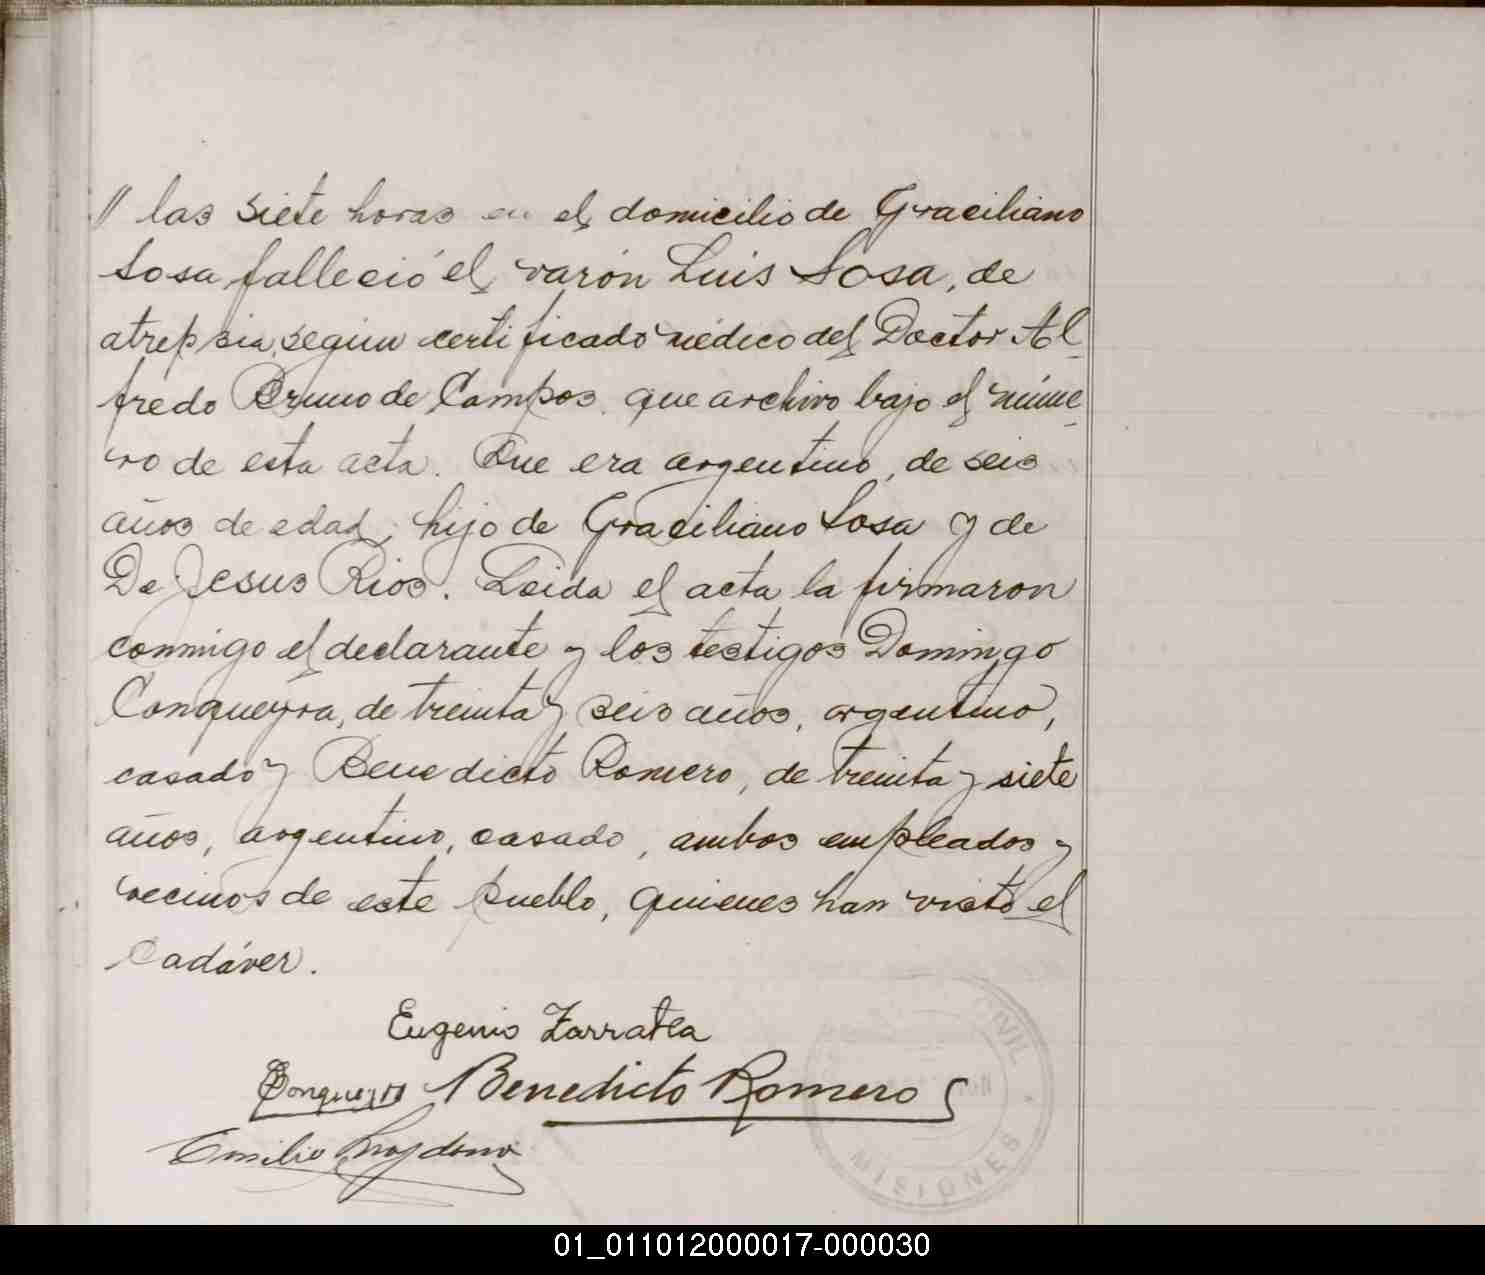 // las siete horas en el domicilio de Graciliano
Sosa falleció el varón Luis Sosa, de
atrepsia, segun certificado médico del Doctor Al-
fredo Bruno de Campos, que archivo bajo el núme-
ro de esta acta. Que era argentino, de seis
años de edad, hijo de Graciliano Sosa y de
De Jesus Rios. Leida el acta la firmaron
conmigo el declarante y los testigos Domingo
Conqueyra, de treinta y seis años, argentino,
casado y Benedicto Romero, de treinta y siete
años, argentino, casado, ambos empleados y
vecinos de este pueblo, quienes han visto el
cadáver.
Eugenio Zarratea
Conqueyra Benedicto Romero
Emilio
CIVIL
MISIONES
01_011012000017-000030